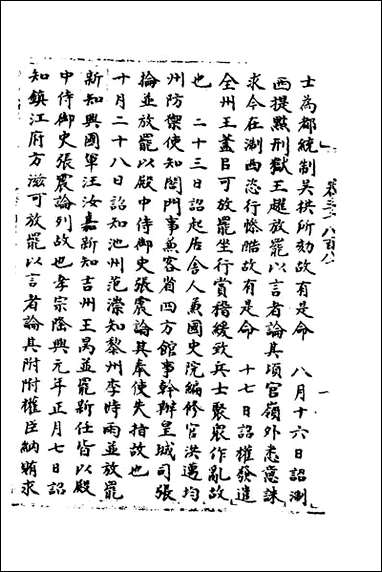 士為都統制吳拱所劾故有是命　八月十六日詔淛
西提㸃刑獄王趯放罷以言者論其頃官嶺外恣意誅
求今在淛西恣行慘酷故有是命　十七日詔權發遣
全州王葢臣可放罷坐行賞稽緩致兵士聚衆作亂故
也　二十三日詔起居舍人兼國史院編修官洪邁均
州防禦使知閤門事兼客省四方館事幹辦皇城司張
掄並放罷以殿中侍御史張震論其奉使失指故也
十月二十八日詔知池州范漴知黎州李時雨並放罷
新知興國軍汪汝嘉新知吉州王昺並罷新任皆以殿
中侍御史張震論列故也孝宗隆興元年正月七日詔
知鎮江府方滋可放罷以言者論其附附權臣納賄求